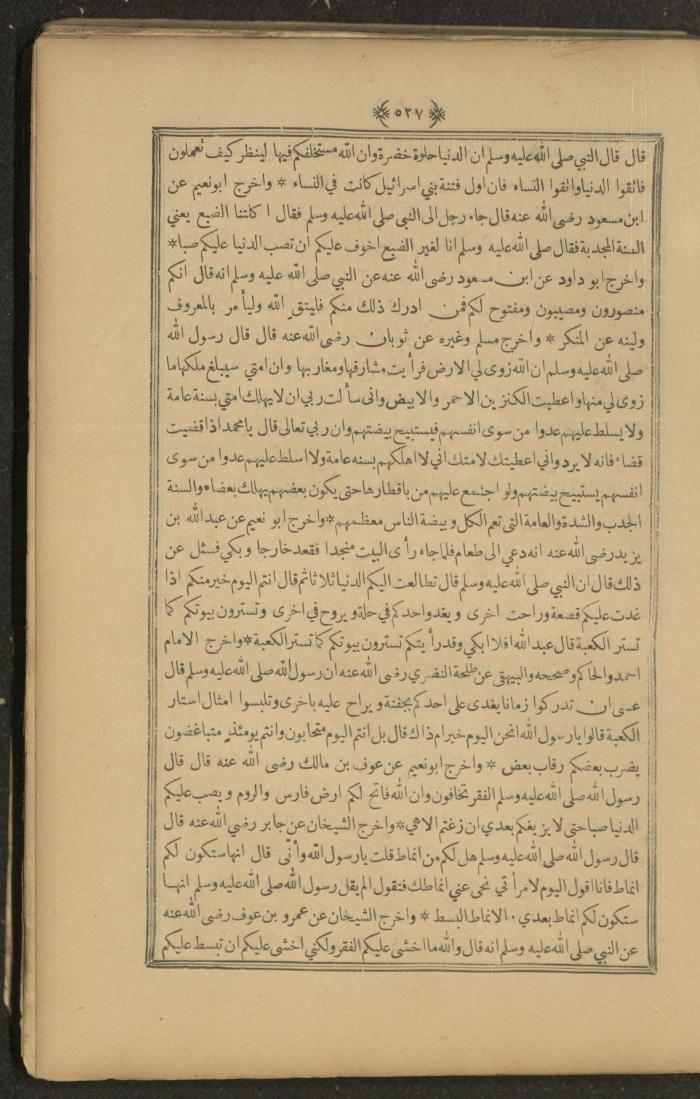 ٥٢٧
قال قال النبي صلى الله عليه وسلم ان الدنيا حلوة خضرة وان الله مستخلفكم فيها لينظر كيف تعملون
فاتقوا الدنيا واتقوا النساء فان اول فتنة بني اسرائيل كانت في النساء * واخرج ابو نعيم عن
ابن مسعود رضى الله عنه قال جاء رجل الى النبي صلى الله عليه وسلم فقال ا كلتنا الضبع يعني
السنة المجدبة فقال صلى الله عليه وسلم انا لغير الضبع اخوف عليكم ان تصب الدنيا عليكم صبا *
واخرج ابو داود عن ابن مسعود رضى الله عنه عن النبي صلى الله عليه وسلم انه قال انكم
منصورون ومصيبون ومفتوح لكم فمن ادرك ذلك منكم فليتق الله وليأ مر بالمعروف
ولينه عن المنكر * واخرج مسلم وغيره عن ثوبان رضى الله عنه قال قال رسول الله
صلى الله عليه وسلم ان الله زوى لي الارض فرأيت مشارقها ومغاربها وان امتي سيبلغ ملكها ما
زوى لي منها واعطيت الكنزين الاحمر والابيض وانى سألت ربي ان لا يهلك امتي بسنة عامة
ولا يسلط عليهم عدوا من سوى انفسهم فيستبيح بيضتهم وان ربي تعالى قال يا محمد اذا قضيت
قضاء فانه لا يرد واني اعطيتك لامتك اني لا اهلكهم بسنه عامة ولا اسلط عليهم عدوا من سوى
انفسهم يستبيح بيضتهم ولو اجتمع عليهم من باقطارها حتى يكون بعضهم يهلك بعضا * والسنة
الجدب والشدة والعامة التى تعم الكل وبيضة الناس معظمهم * واخرج ابو نعيم عن عبدالله بن
يزيد رضى الله عنه انه دعي الى طعام فلما جاء رأى البيت منجدا فقعد خارجا وبكي فسئل عن
ذلك قال ان النبي صلى الله عليه وسلم قال تطالعت اليكم الدنيا ثلاثا ثم قال انتم اليوم خير منكم اذا
غدت عليكم قصعة وراحت اخرى ويغدو احدكم في حلة ويروح في اخرى وتسترون بيوتكم كما
تستر الكعبة قال عبد الله افلا ابكي وقد رأيتكم تسترون بيوتكم كما تستر الكعبة * واخرج الامام
احمد والحاكم وصححه والبيهقي عن طلحة النضري رضى الله عنه ان رسول الله صلى الله عليه وسلم قال
عسى ان تدركوا زمانا يغدى على احدكم بجفنة ويراح عليه باخرى وتلبسوا امثال استار
الكعبة قالوا يا رسول الله انحن اليوم خير ام ذاك قال بل انتم اليوم متحابون وانتم يومئذ متباغضون
يضرب بعضكم رقاب بعض * واخرج ابو نعيم عن عوف بن مالك رضى الله عنه قال قال
رسول الله صلى الله عليه وسلم الفقر تخافون وان الله فاتح لكم ارض فارس والروم ويصب عليكم
الدنيا صبا حتى لا يزيغكم بعدي ان زغتم الا هي * واخرج الشيخان عن جابر رضي الله عنه قال
قال رسول الله صلى الله عليه وسلم هل لكم من انماط قلت يا رسول الله وأنّى قال انها ستكون لكم
انماط فانا اقول اليوم لامرأتي نحى عني انماطك فتقول الم يقل رسول الله صلى الله عليه وسلم انها
ستكون لكم انماط بعدي . الانماط البسط * واخرج الشيخان عن عمرو بن عوف رضى الله عنه
عن النبي صلى الله عليه وسلم انه قال والله ما اخشى عليكم الفقر ولكني اخشى عليكم ان تبسط عليكم